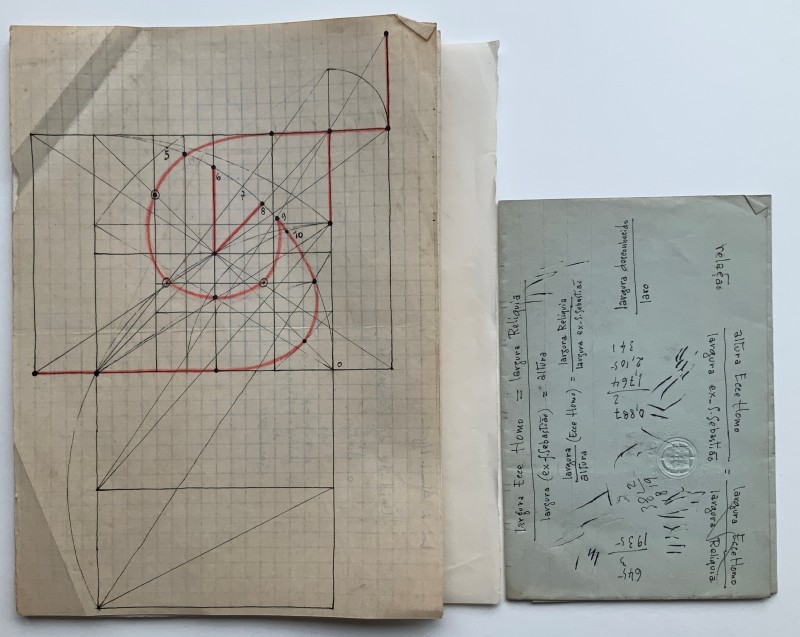 5
6
7
8
9
10
0
largura Ecce Homo = largura Relíquia
largura (ex-S.Sebastião) = altura
largura (Ecce Homo) = largura Relíquia
altura largura ex-S.Sebastião
largura desconhecido
laro
0,887
1,764 2
2,105
341
645
1935 3
relação
altura Ecce Homo = largura Ecce Homo
largura ex-S.Sebastião largura Relíquia